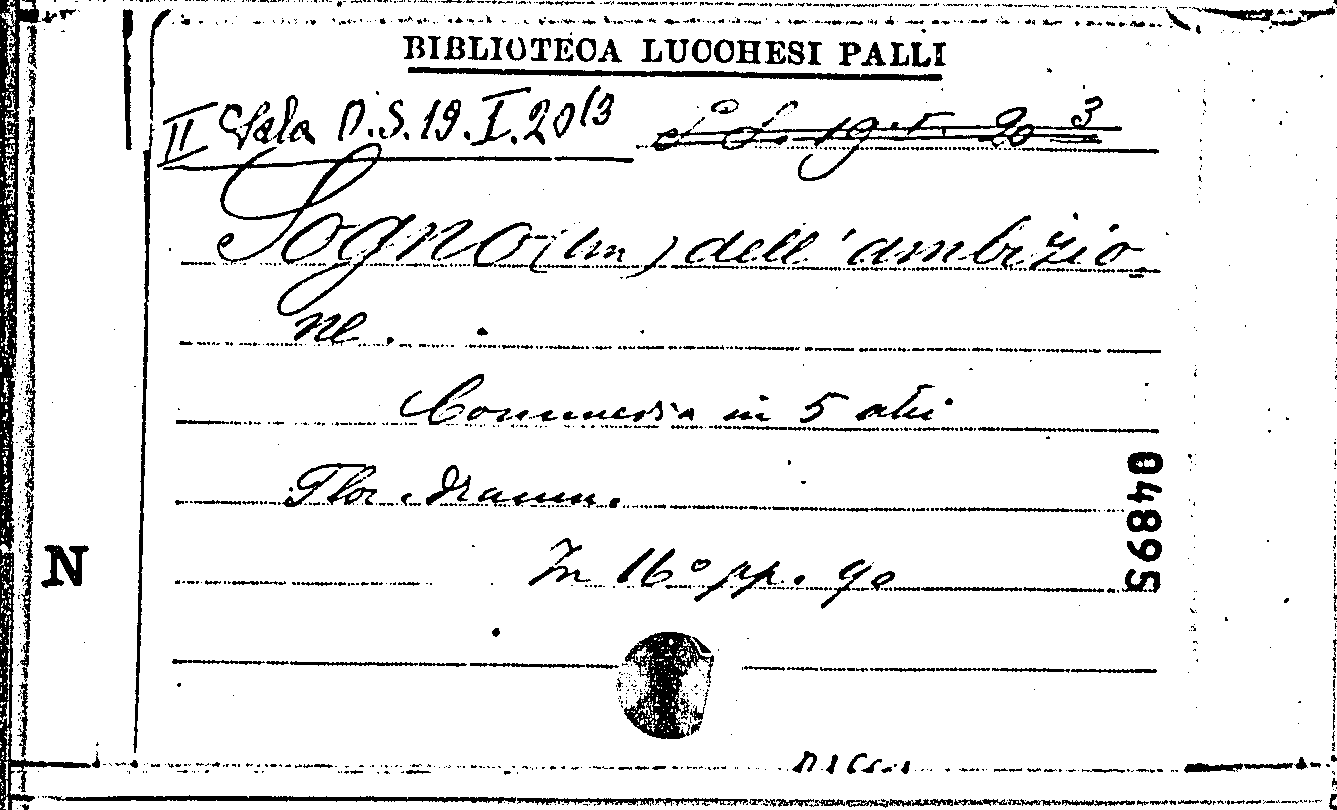 BIBLIOTECA LUCCHESI PALLI
II Sala D.S.19.I.20(3
S. S. 19. I. 20 3
Sogno (Un) dell'ambizio
ne.
Commedia in 5 atti
Flor. dramm.
In 16º pp. 90
04895
N